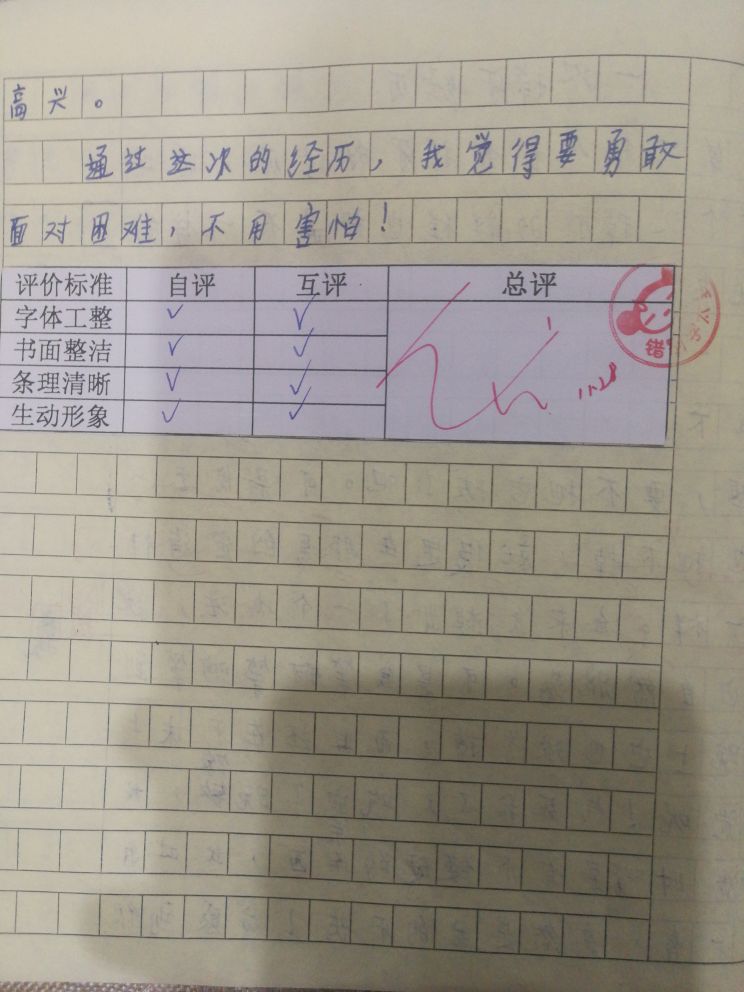 高兴。
通过这次的经历，我觉得要勇敢
面对困难，不用害怕！
评价标准 自评 互评 总评
字体工整 ✓ ✓
书面整洁 ✓ ✓
条理清晰 ✓ ✓
生动形象 ✓ ✓
11.28
错